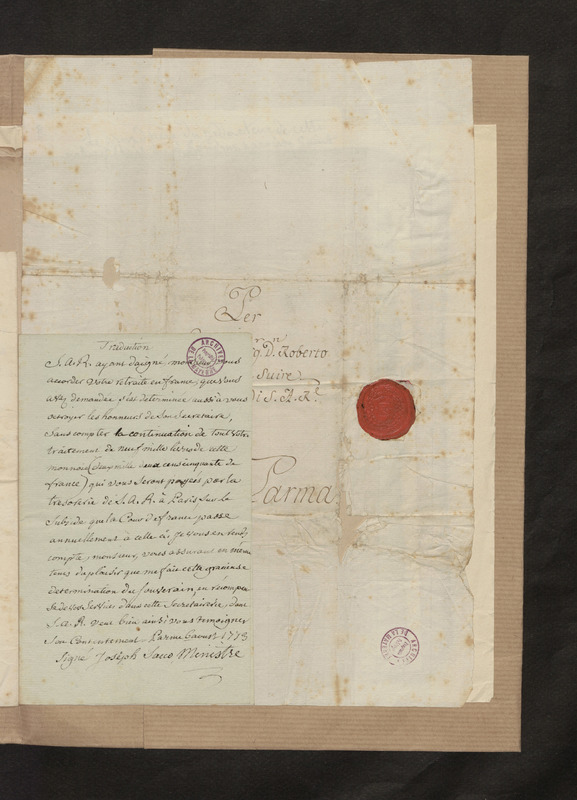 Per
g. D. Roberto
Suire
di S. A. R.
Parma
Traduction
S. A. R. ayant daigné monsieur vous
accorder votre retraite en france, que vous
avez demandée, s'est determinée aussi à vous
octroyer les honneurs de Son Secretaire,
Sans compter la continuation de tout votre
traitement de neuf mille livres de cette
monnoie (deux mille cinquante de
france) qui vous seront payées par la
tresorerie de S. A. R. à Paris sur le
Subside que la Cour de france passe
annuellement à celle ci. Je vous en rends
compte, monsieur, vous assurant en meme
tems du plaisir que me fait cette gracieuse
determination du Souverain, en recompen
se de vos Services dans cette Secretairerie, dont
S. A. R. veut bien ainsi vous temoigner
Son Contentement Parme 6 aoust 1778
Signé Joseph Sacco Ministre